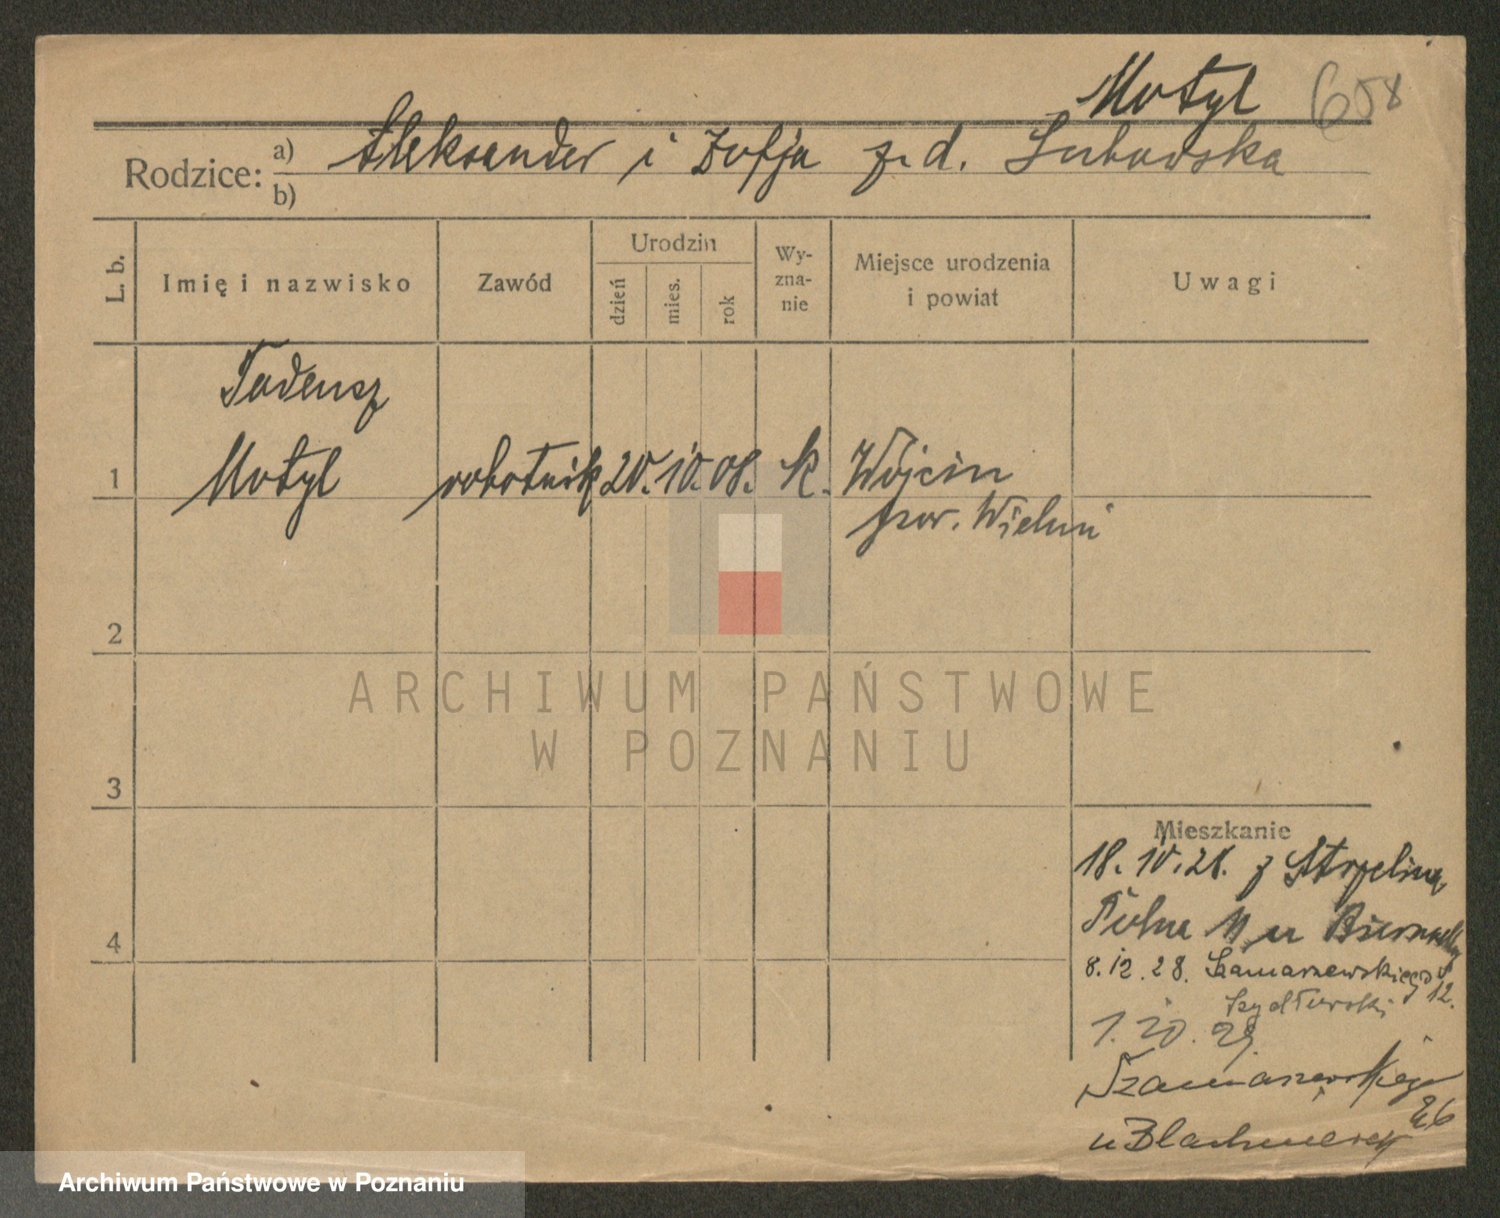 Motyl 658
Rodzice: a) Aleksander i Zofja z d.
b)
L. b. Imię i nazwisko Zawód Urodzin dzień mies. rok Wy-zna-nie Miejsce urodzenia i powiat Uwagi
Tadeusz
1 Motyl robotnik 20. 10. 08. k. Wójcin
pow. Wieluń
2
ARCHIWUM PAŃSTWOWE
W POZNANIU
3
Mieszkanie
18. 10. 28. z Strzelna
4 Polna 11 u
8. 12. 28. Szamarzewskiego 12.
Szydłowski
1. 10. 29.
Szamarzewskiego 26
u
Archiwum Państwowe w Poznaniu